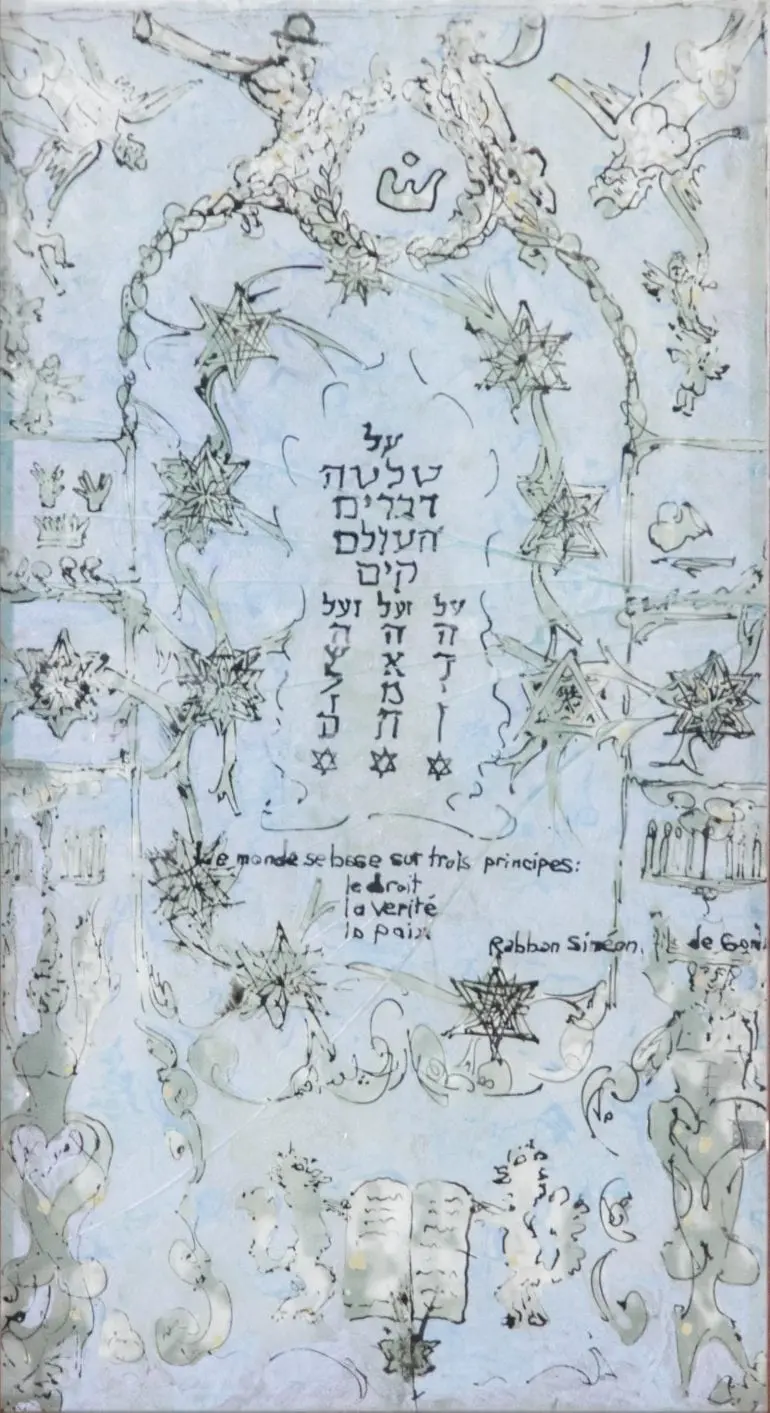 על
שלשה
דברים
העולם
קים
על הדין
ועל האמת
ועל השלום
Le monde se base sur trois principes:
le droit
la verité
la paix.
Rabban Siméon, fils de Gam